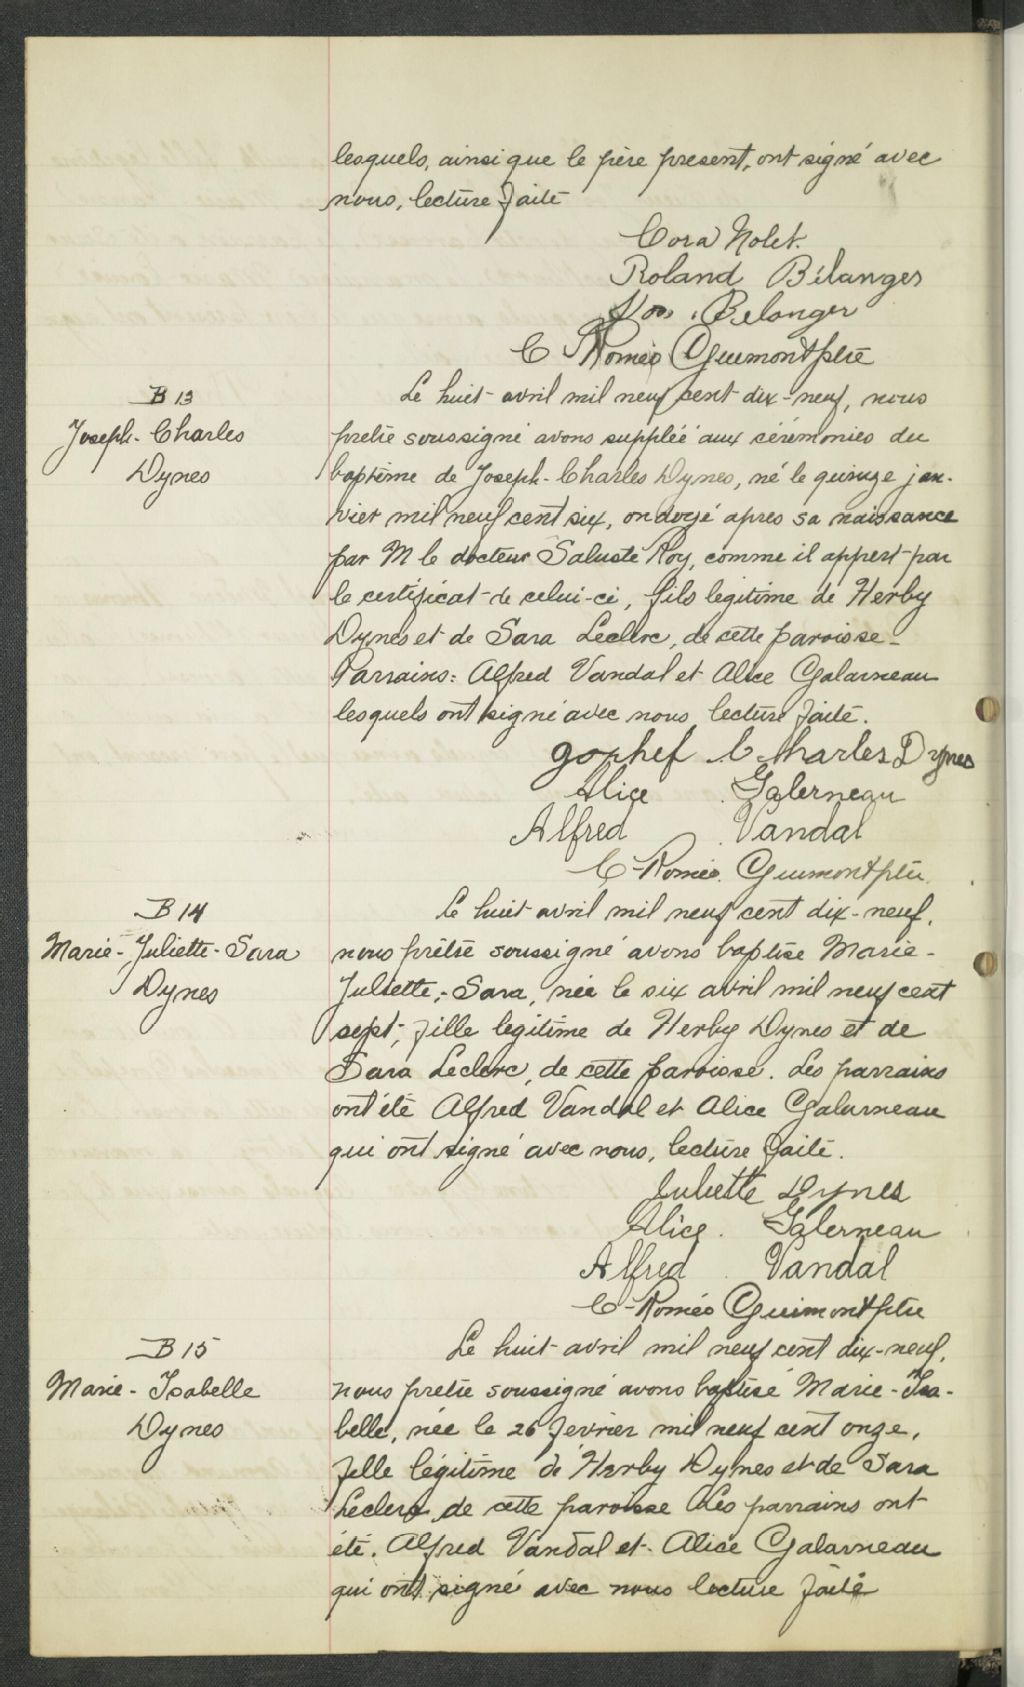 lesquels, ainsi que le père present, ont signé avec
nous, lecture faite
Cora Nolet.
Roland Bélanger
Belanger
C Roméo Guimont ptre
B 13
Joseph-Charles
Dynes
Le huit avril mil neuf cent dix-neuf, nous
pretre soussigné avons suppléé aux cérémonies du
baptême de Joseph-Charles Dynes, né le quinze jan-
vier mil neuf cent six, ondoyé apres sa naissance
par M le docteur Saluste Roy, comme il appert par
le certificat de celui-ci, fils legitime de Herby
Dynes et de Sara Leclerc, de cette paroisse-
Parrains: Alfred Vandal et Alice Galarneau
lesquels ont signé avec nous, lecture faite.
Gophef C Charles Dynes
Alice Galerneau
Alfred Vandal
C-Romeo Guimont ptre.
B 14
Marie-Juliette-Sara
Dynes
Le huit avril mil neuf cent dix-neuf,
nous prêtre soussigné avons baptise Marie-
Juliette-Sara, née le six avril mil neuf cent
sept, fille legitime de Herby Dynes et de
Sara Leclerc, de cette paroisse. Les parrains
ont été Alfred Vandal et Alice Galarneau
qui ont signé avec nous, lecture faite.
Juliette Dynes
Alice. Galerneau
Alfred Vandal
C-Roméo Guimont ptre
B 15
Marie-Isabelle
Dynes
Le huit avril mil neuf cent dix-neuf,
nous pretre soussigné avons baptisé Marie-Isa-
belle, née le 26 fevrier mil neuf cent onze,
fille légitime de Herby Dynes et de Sara
Leclerc de cette paroisse Les parrains ont
été. Alfred Vandal et Alice Galarneau
qui ont signé avec nous lecture faite